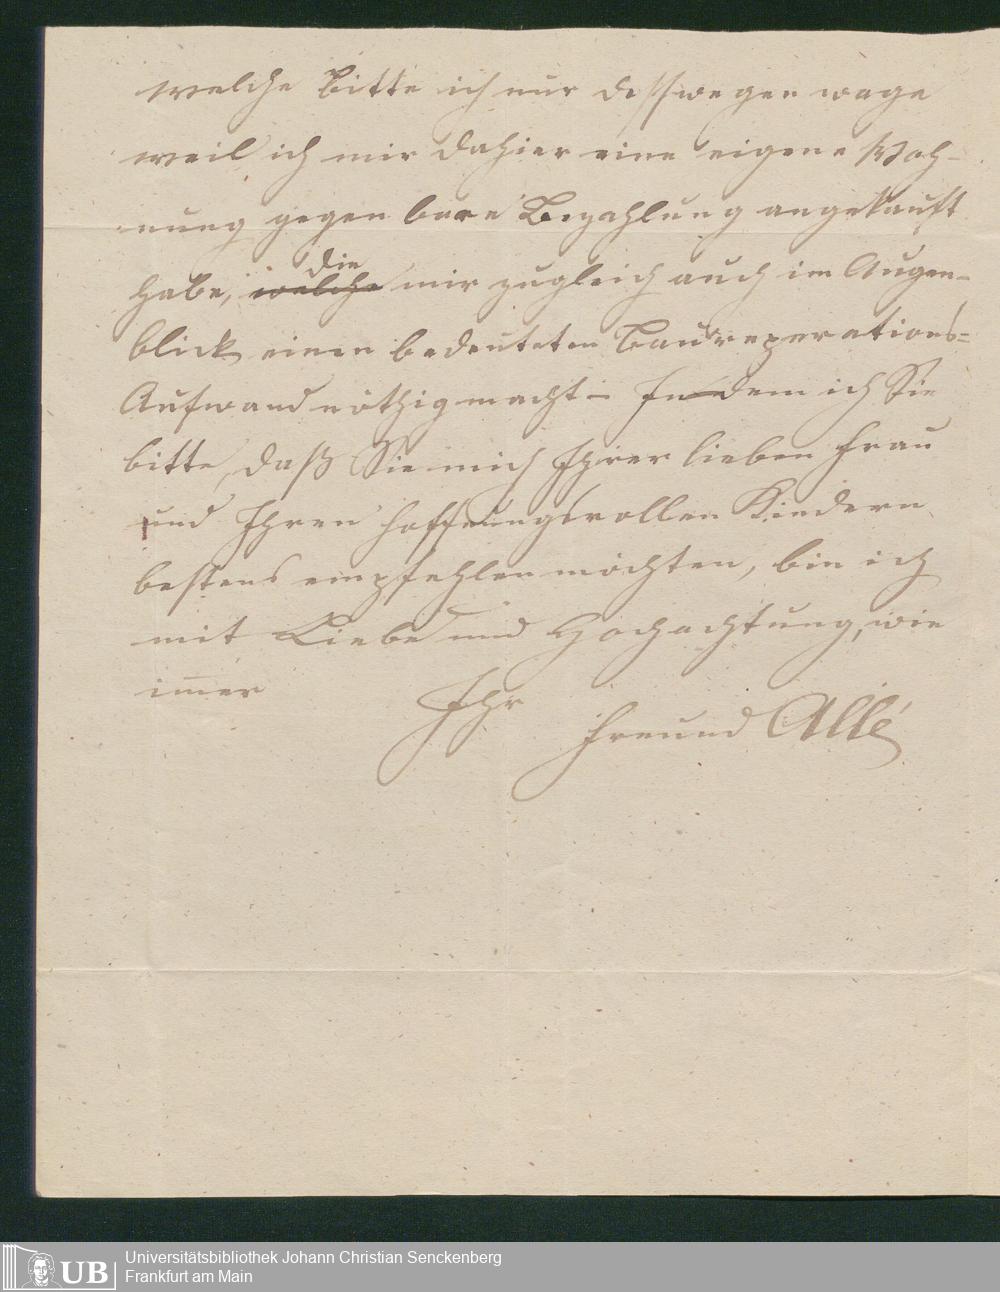 welche Bitte ich nur desswegen wage
weil ich mir dahier eine eigene Woh-
nung gegen bare Bezahlung angekauft
habe, welche die mir zugleich auch im Augen-
blick einen bedeuteten Baureperations-
Aufwand nöthig macht – Indem ich Sie
bitte, daß Sie mich Ihrer lieben Frau
und Ihren hoffnungsvollen Kindern
bestens empfehlen möchten, bin ich
mit Liebe und Hochachtung, wie
im̅er
Ihr
Freund Allé
UB
Universitätsbibliothek Johann Christian Senckenberg
Frankfurt am Main